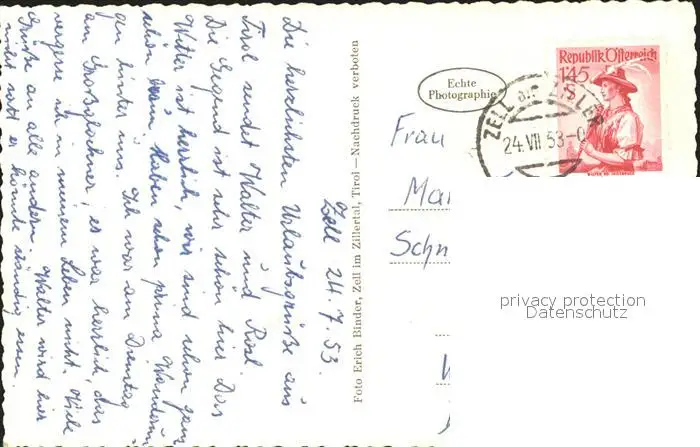 Zell 24.7.53.
Die herzlichsten Urlaubsgrüße aus
Tirol sendet Walter und Rosl.
Die Gegend ist sehr schön hier Das
Wetter ist herrlich, wir sind schon ganz
schön braun. Haben schon prima Wanderun
gen hinter uns. Ich war am Dienstag
am Großglockner, es war herrlich, das
vergesse ich in meinem Leben nicht. Viele
Grüße an alle andern. Walter wird hier
nicht satt er könnte ständig essen.
Foto Erich Binder, Zell im Zillertal, Tirol — Nachdruck verboten
Echte
Photographie
Republik Österreich
1'45
S
ZELL a. ZILLER
24.VII 53-0
Frau
Ma
Schn
privacy protection
Datenschutz